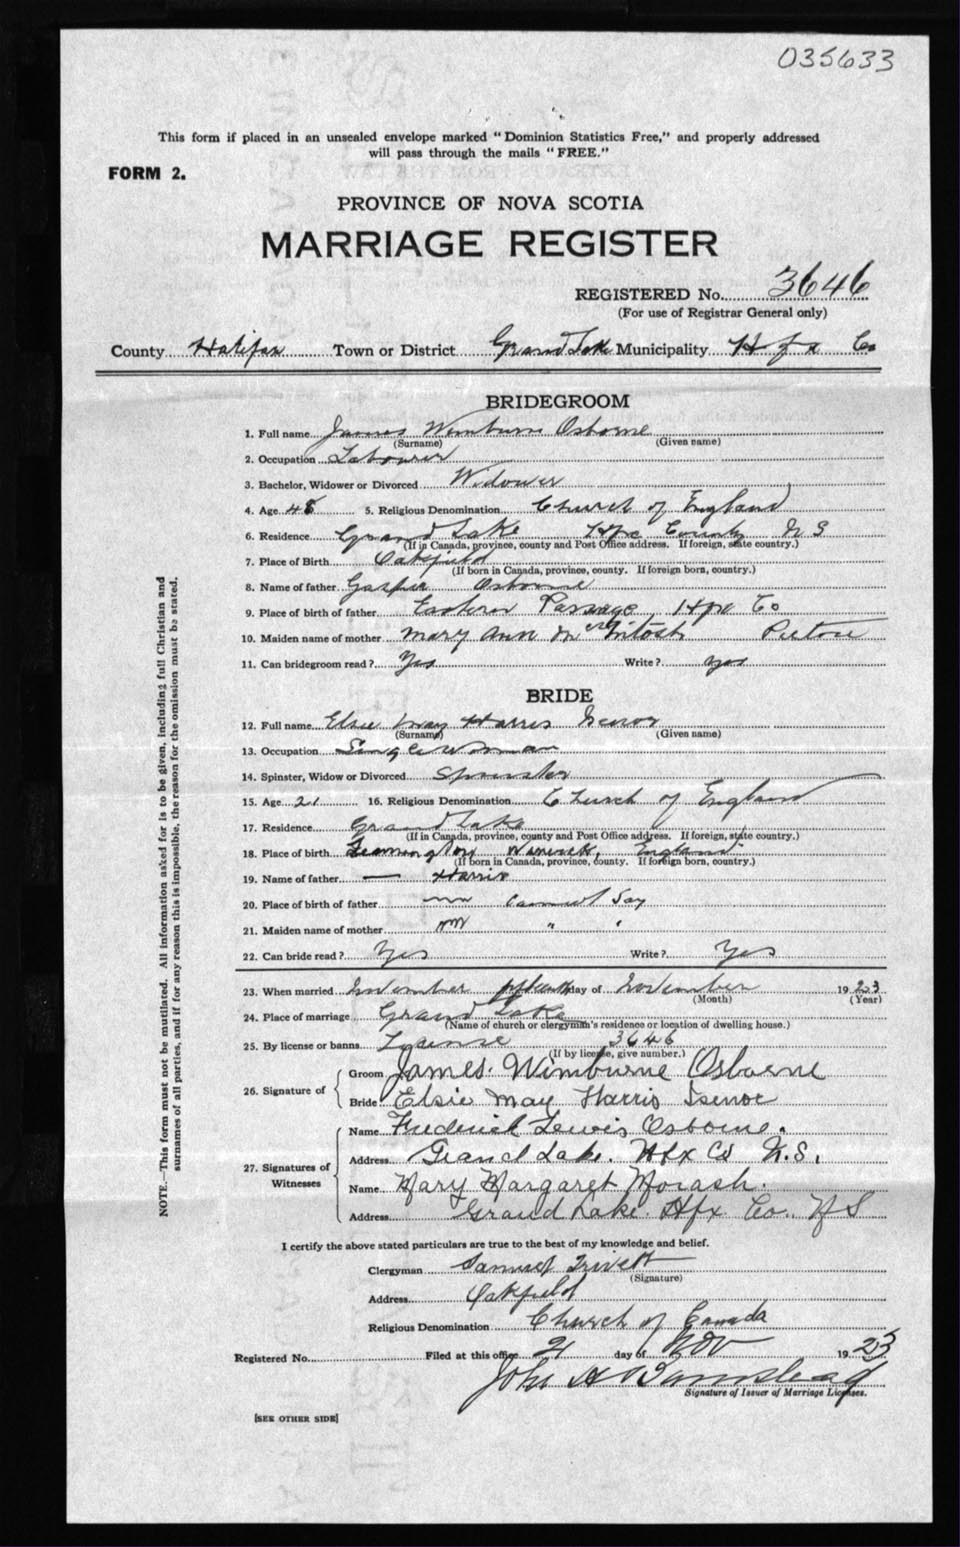 035633
This form if placed in an unsealed envelope marked "Dominion Statistics Free," and properly addressed
will pass through the mails "FREE."
FORM 2.
PROVINCE OF NOVA SCOTIA
MARRIAGE REGISTER
REGISTERED No. 3646
(For use of Registrar General only)
County Halifax Town or District Grand Lake Municipality Hfx Co
BRIDEGROOM
1. Full name James Wimburn Osborne
(Surname) (Given name)
2. Occupation Labourer
3. Bachelor, Widower or Divorced Widower
4. Age 48 5. Religious Denomination Church of England
6. Residence Grand Lake Hfx County N S
(If in Canada, province, county and Post Office address. If foreign, state country.)
7. Place of Birth Oakfield
(If born in Canada, province, county. If foreign born, country.)
8. Name of father Osborne
9. Place of birth of father Eastern Passage, Hfx Co
10. Maiden name of mother Mary Ann McIntosh Pictou
11. Can bridegroom read? Yes Write? Yes
BRIDE
12. Full name Elsie May Harris Isenor
(Surname) (Given name)
13. Occupation Single woman
14. Spinster, Widow or Divorced Spinster
15. Age 21 16. Religious Denomination Church of England
17. Residence Grand Lake
(If in Canada, province, county and Post Office address. If foreign, state country.)
18. Place of birth Leamington Warwick, England
(If born in Canada, province, county. If foreign born, country.)
19. Name of father — Harris
20. Place of birth of father cannot say
21. Maiden name of mother " "
22. Can bride read? Yes Write? Yes
23. When married November fifteenth day of November 1923
(Month) (Year)
24. Place of marriage Grand Lake
(Name of church or clergyman's residence or location of dwelling house.)
25. By license or banns License 3646
(If by license, give number.)
26. Signature of Groom James Wimburne Osborne
Bride Elsie May Harris Isenor
27. Signatures of Witnesses Name Frederick Lewis Osborne.
Address Grand Lake. Hfx Co N.S.
Name Mary Margaret Morash.
Address Grand Lake. Hfx Co. N S
I certify the above stated particulars are true to the best of my knowledge and belief.
Clergyman Samuel Trivett
(Signature)
Address Oakfield
Religious Denomination Church of Canada
Registered No. Filed at this office 21 day of Nov 1923
John H
Signature of Issuer of Marriage Licenses.
[SEE OTHER SIDE]
NOTE.—This form must not be mutilated. All information asked for is to be given, including full Christian and
surnames of all parties, and if for any reason this is impossible, the reason for the omission must be stated.